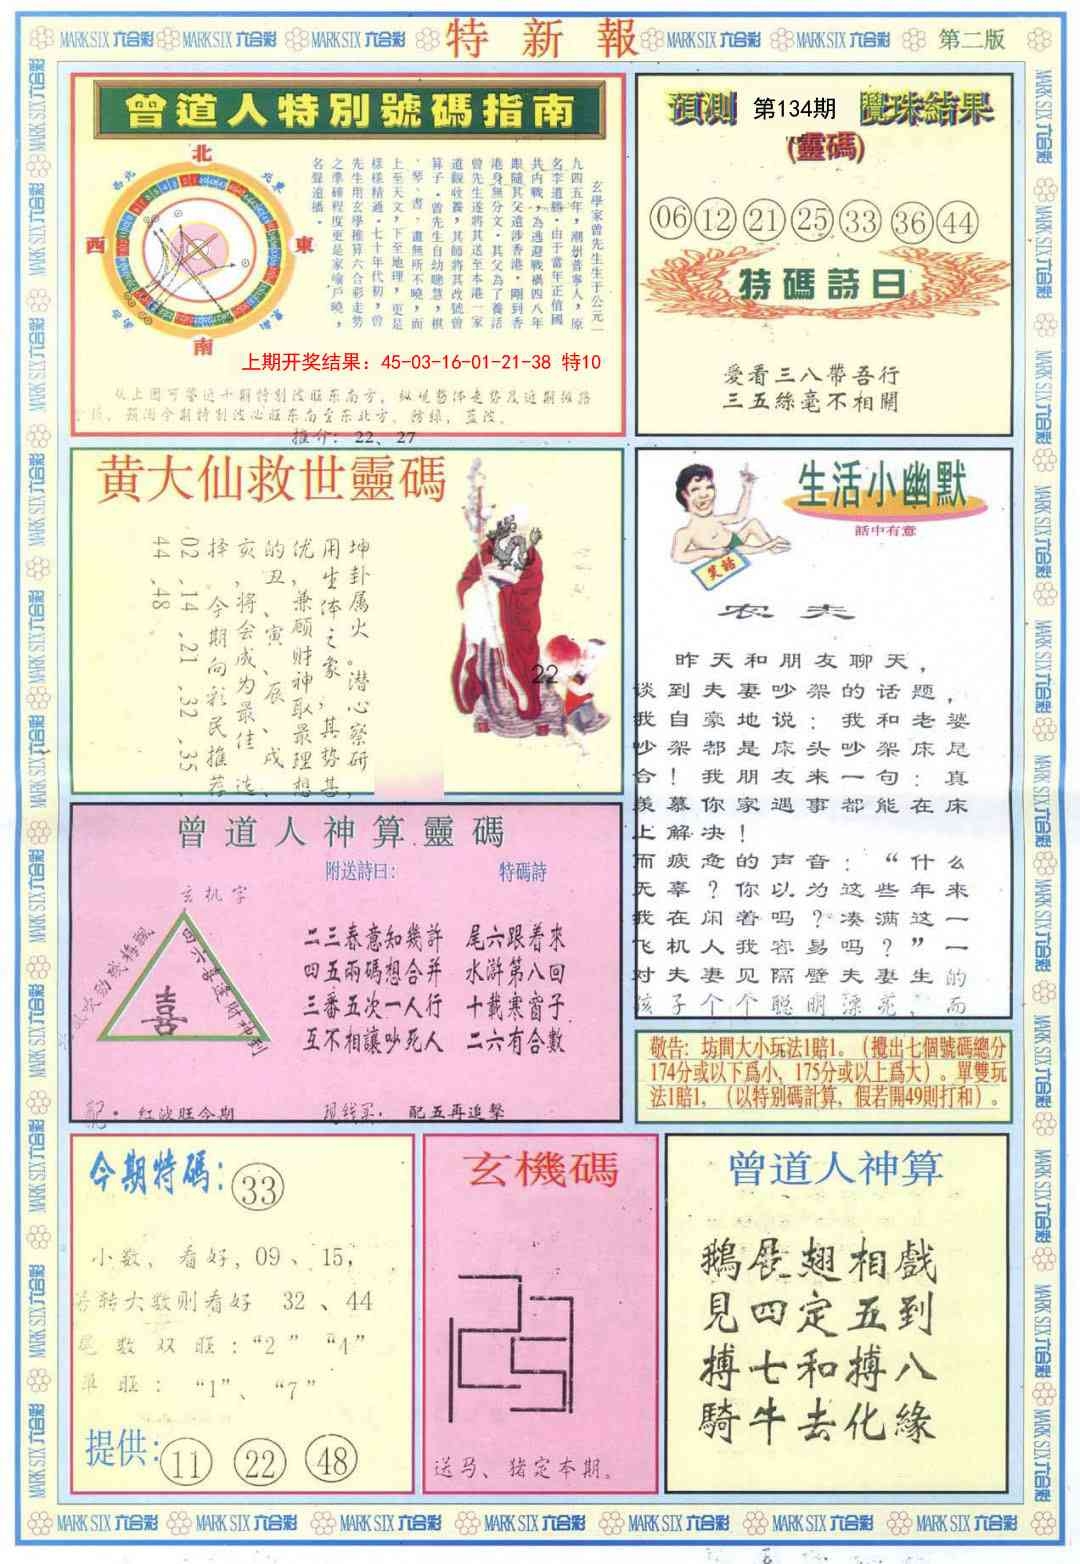 MARK SIX 六合彩 MARK SIX 六合彩 MARK SIX 六合彩 特新報 MARK SIX 六合彩 MARK SIX 六合彩 第二版
曾道人特別號碼指南
北
西北
東
西
南
玄學家曾先生生于公元一
九四五年，潮州普寧人，原
名李道勝。由于當年正值國
共内戰，為逃避戰禍四八年
跟隨其父遠涉香港，剛到香
港身無分文，其父為了養活
曾先生遂將其送至本港一家
道觀收養，其師將其改號曾
算子。曾先生自幼聰慧，棋
、琴、書、畫無所不曉，而
上至天文，下至地理，更是
樣樣精通。七十年代初，曾
先生用玄學推算六合彩走勢
之準確程度更是家喻戶曉，
名聲遠播。
上期开奖结果：45-03-16-01-21-38 特10
从上图可鉴近十期特别波旺东南方，纵观整体走势及近期路
预测今期特别波必旺东南至东北方。防绿，蓝波。
推介：22、27
預測 第134期 攪珠結果
(靈碼)
06 12 21 25 33 36 44
特碼詩曰
愛看三八帶吾行
三五絲毫不相關
黄大仙救世靈碼
坤卦属火。潜心察研，
用生体之象，其势甚
优，兼顾财神取最理想
的丑、寅、辰、戌、
亥，将会成为最佳选
择，今期向彩民推荐
02、14、21、32、35、
44、48
22
生活小幽默
話中有意
笑話
农夫
昨天和朋友聊天，
谈到夫妻吵架的话题，
我自豪地说：我和老婆
吵架都是床头吵架床尾
合！我朋友来一句：真
羡慕你家遇事都能在床
上解决！
而疲惫的声音：“什么
无辜？你以为这些年来
我在闹着吗？凑满这一
飞机人我容易吗？”一
对夫妻见隔壁夫妻生的
孩子个个聪明漂亮，而
曾道人神算靈碼
附送詩曰：
特碼詩
玄机字
四六喜逢财神到
喜
二三春意知幾許
四五兩碼想合并
三番五次一人行
互不相讓吵死人
尾六跟着來
水滸第八回
十載寒窗子
二六有合數
配
红波旺今期
配五再追擊
敬告：坊間大小玩法1賠1。（攪出七個號碼總分
174分或以下爲小，175分或以上爲大）。單雙玩
法1賠1，（以特别碼計算，假若開49則打和）。
今期特碼：33
小数，看好，09、15，
若转大数则看好 32、44
尾数双旺：“2” “4”
单旺：“1”、“7”
提供：11 22 48
玄機碼
送马、猪定本期。
曾道人神算
鵝展翅相戲
見四定五到
搏七和搏八
騎牛去化緣
MARK SIX 六合彩 MARK SIX 六合彩 MARK SIX 六合彩 MARK SIX 六合彩 MARK SIX 六合彩 MARK SIX 六合彩 MARK SIX 六合彩